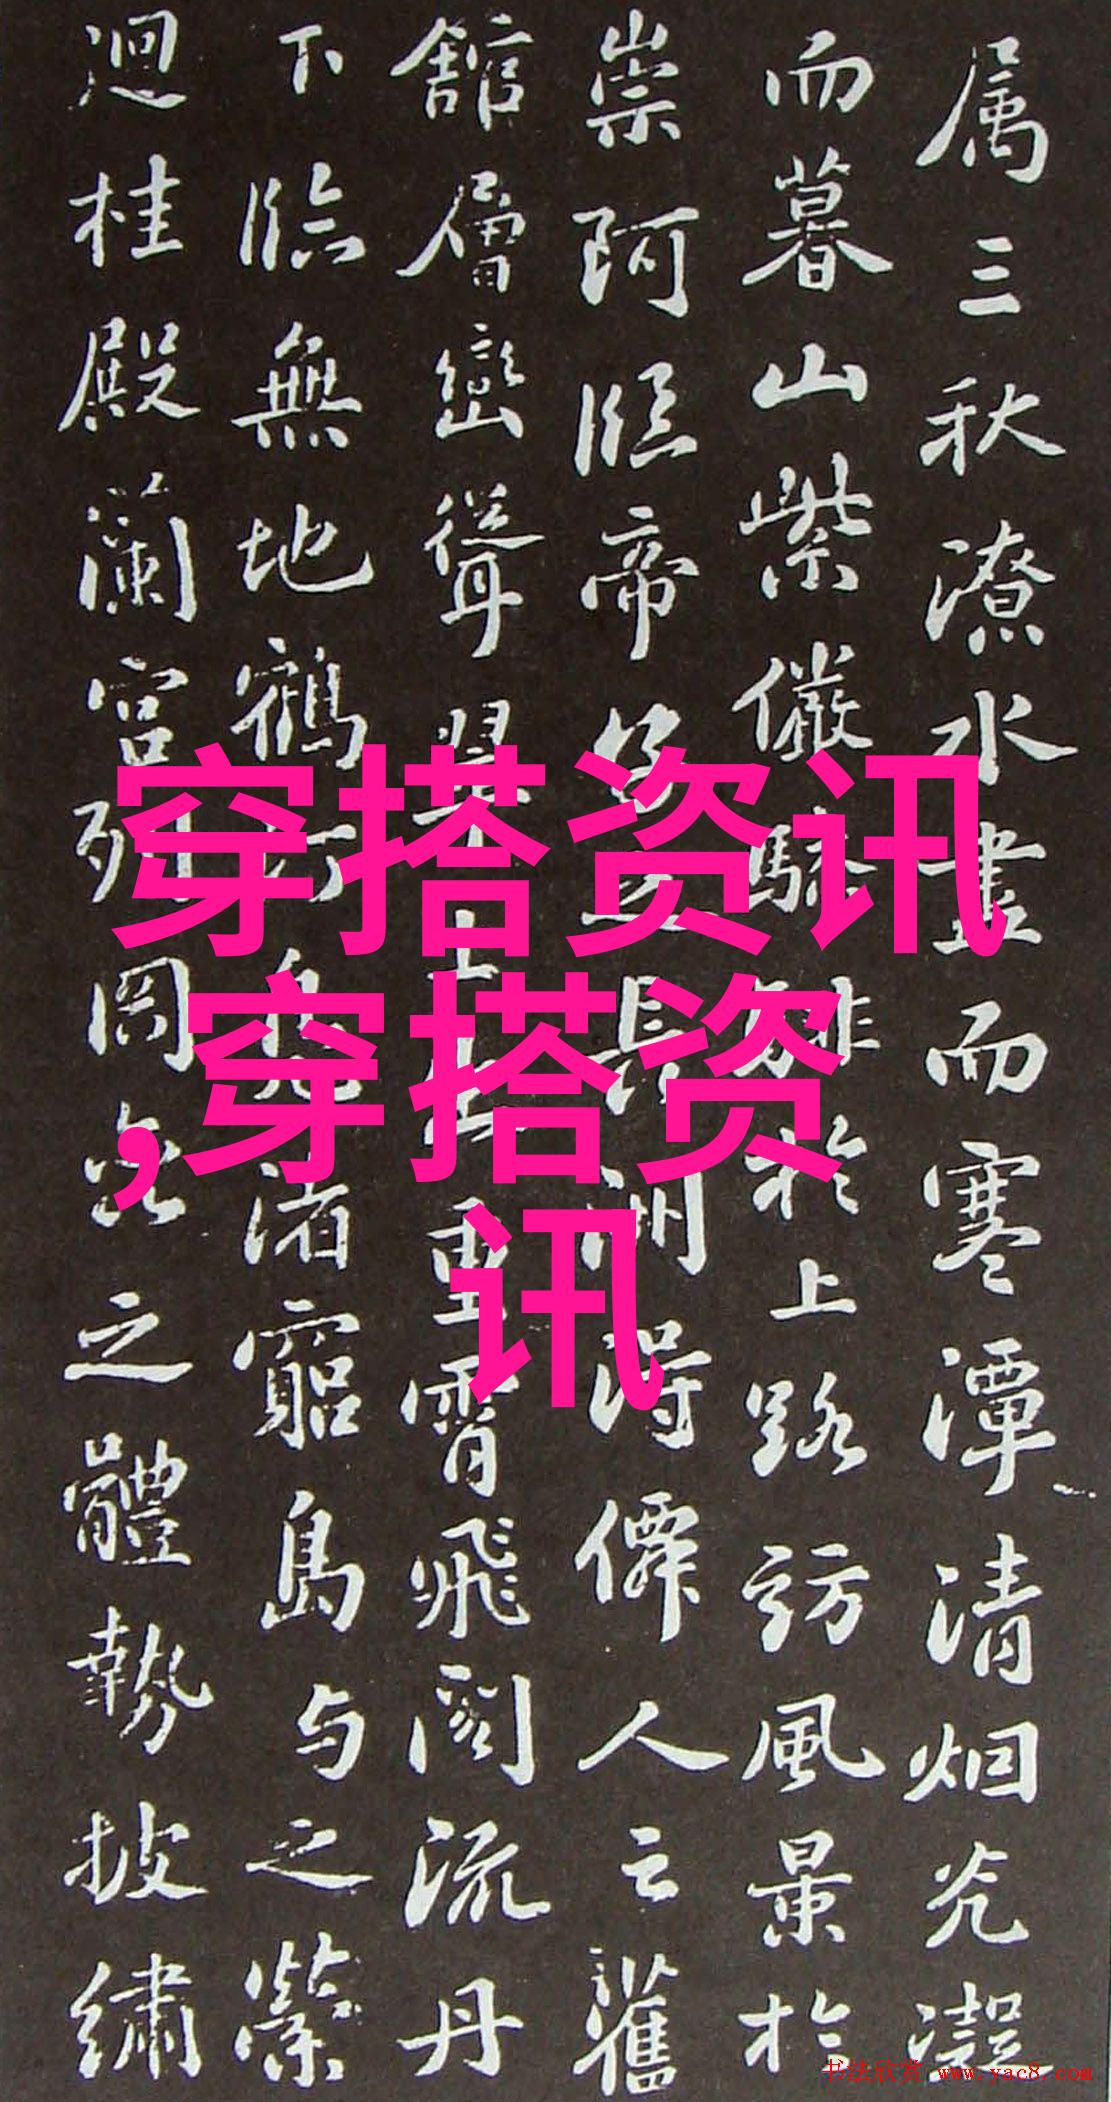 属三秋潦水盡而寒潭清烟光凝
而暮山紫儼驂騑於上路訪風景於
崇阿臨帝子之長洲得僊人之舊
舘層巒聳翠上出重霄飛閣流丹
下臨無地鶴汀鳧渚窮島与之縈
迴桂殿蘭宮列岡巒之體勢披繡
穿搭资讯
,穿搭资
讯
书法欣赏 www.yac8.com